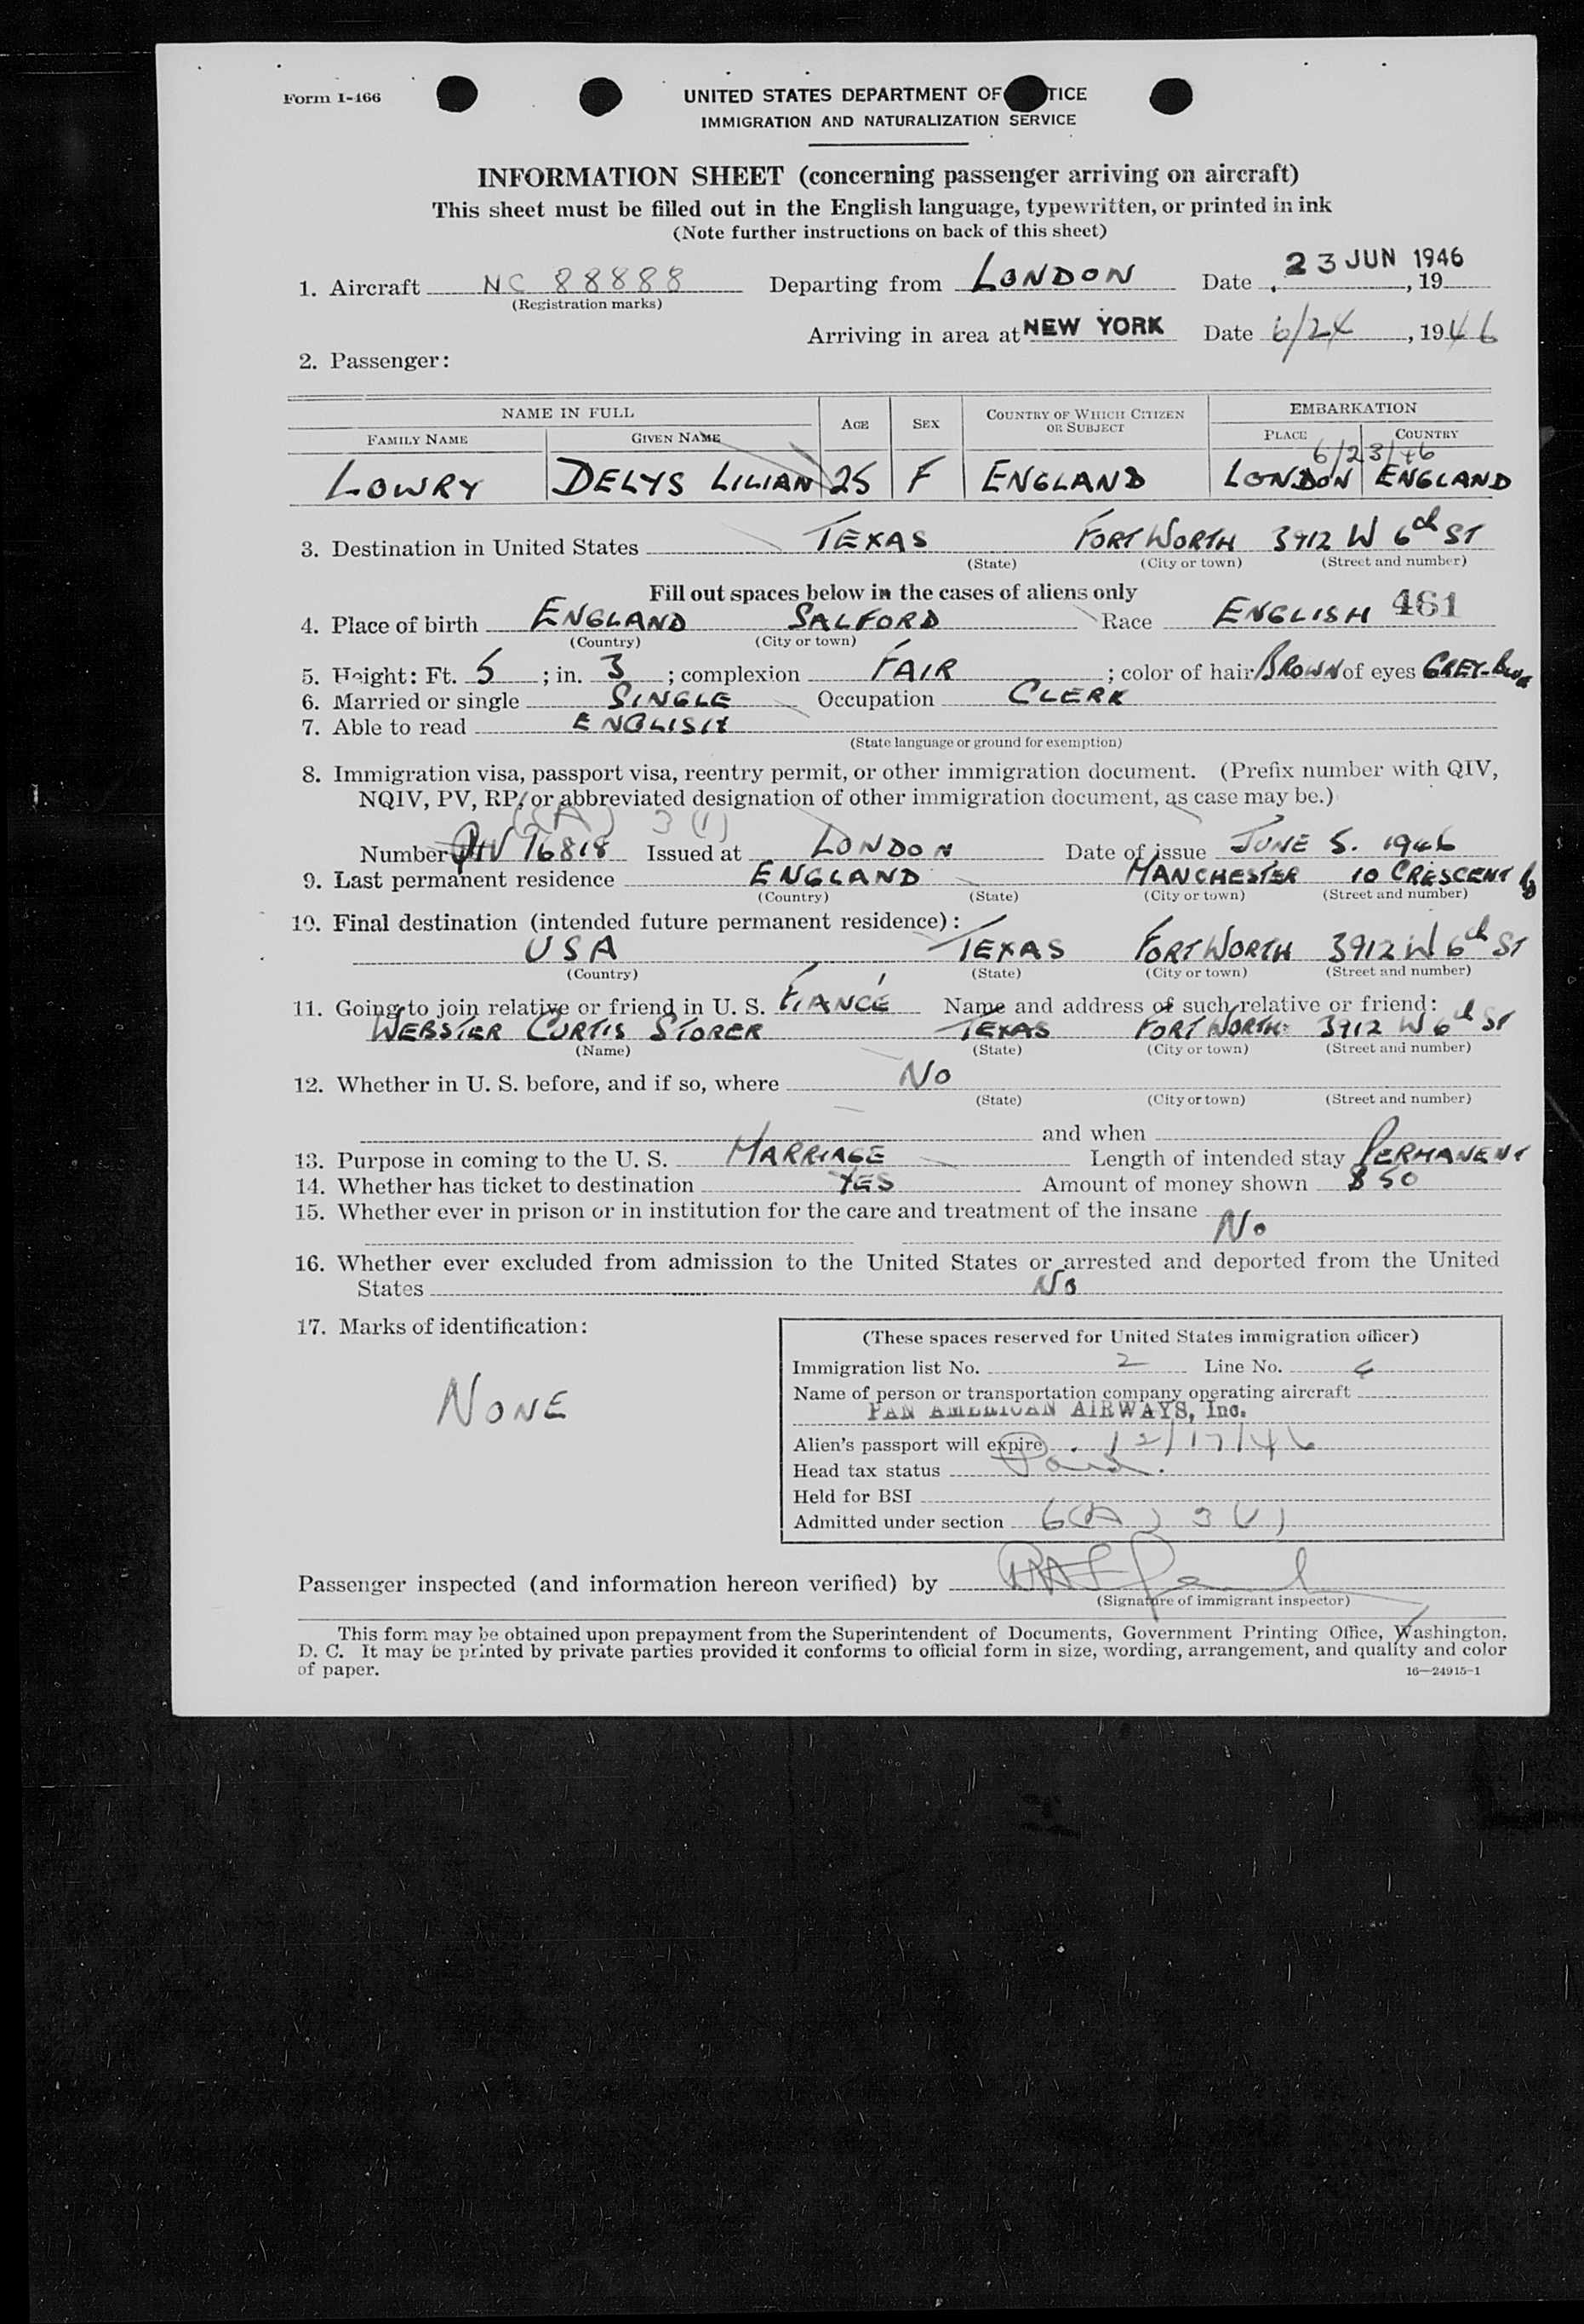 Form I-466
UNITED STATES DEPARTMENT OF TICE
IMMIGRATION AND NATURALIZATION SERVICE
INFORMATION SHEET (concerning passenger arriving on aircraft)
This sheet must be filled out in the English language, typewritten, or printed in ink
(Note further instructions on back of this sheet)
1. Aircraft NC 88888 Departing from LONDON Date 23 JUN 1946, 19
(Registration marks)
Arriving in area at NEW YORK Date 6/24, 1946
2. Passenger:
NAME IN FULL AGE SEX COUNTRY OF WHICH CITIZEN OR SUBJECT EMBARKATION
FAMILY NAME GIVEN NAME PLACE COUNTRY
6/23/46
LOWRY DELYS LILIAN 25 F ENGLAND LONDON ENGLAND
3. Destination in United States TEXAS FORT WORTH 3912 W 6th ST
(State) (City or town) (Street and number)
Fill out spaces below in the cases of aliens only
4. Place of birth ENGLAND SALFORD Race ENGLISH 461
(Country) (City or town)
5. Height: Ft. 5; in. 3; complexion FAIR; color of hair BROWN of eyes GREY-BLUE
6. Married or single SINGLE Occupation CLERK
7. Able to read ENGLISH
(State language or ground for exemption)
8. Immigration visa, passport visa, reentry permit, or other immigration document. (Prefix number with QIV,
NQIV, PV, RP, or abbreviated designation of other immigration document, as case may be.)
3 (1)
Number QIV 76818 Issued at LONDON Date of issue JUNE 5. 1946
9. Last permanent residence ENGLAND MANCHESTER 10 CRESCENT
(Country) (State) (City or town) (Street and number)
10. Final destination (intended future permanent residence):
USA TEXAS FORT WORTH 3912 W 6th ST
(Country) (State) (City or town) (Street and number)
11. Going to join relative or friend in U. S. FIANCÉ Name and address of such relative or friend:
WEBSTER CURTIS STORER TEXAS FORT WORTH 3912 W 6th ST
(Name) (State) (City or town) (Street and number)
12. Whether in U. S. before, and if so, where NO
(State) (City or town) (Street and number)
and when
13. Purpose in coming to the U. S. MARRIAGE Length of intended stay PERMANENT
14. Whether has ticket to destination YES Amount of money shown $50
15. Whether ever in prison or in institution for the care and treatment of the insane
NO
16. Whether ever excluded from admission to the United States or arrested and deported from the United
States NO
17. Marks of identification:
NONE
(These spaces reserved for United States immigration officer)
Immigration list No. 2 Line No. 4
Name of person or transportation company operating aircraft
PAN AMERICAN AIRWAYS, Inc.
Alien's passport will expire 12/17/46
Head tax status Paid.
Held for BSI
Admitted under section 6(A) 3(1)
Passenger inspected (and information hereon verified) by
(Signature of immigrant inspector)
This form may be obtained upon prepayment from the Superintendent of Documents, Government Printing Office, Washington,
D. C. It may be printed by private parties provided it conforms to official form in size, wording, arrangement, and quality and color
of paper.
16—24915-1